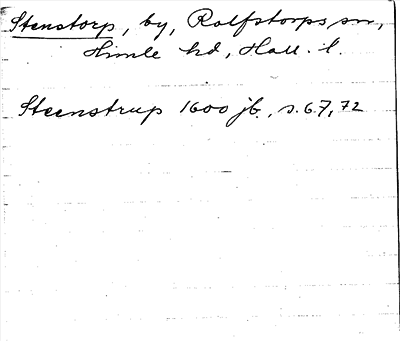 Stenstorp, by, Rolfstorps sn,
Himle hd, Hall. l.
Steenstrup 1600 jb, s. 67, 72